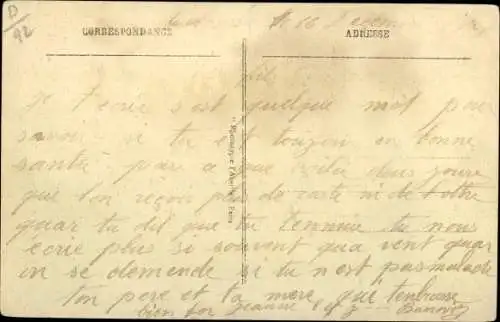 D
92
CORRESPONDANCE
ADRESSE
le 16 Décem
Je t ecrie s est quelque mot pour
savoir si tu est toujour en bonne
santée parce que voila deus jours
que l'on reçoit plus de carte ni de l'otre
quar tu dit que tu t'ennuie tu nous
ecrie plus si souvent qu'a vent quar
on se demende si tu n est pas malade
ton pere et ta mere qui t'enbrasse
bien for Jeanne
"Phototypie l'Abeille", Paris